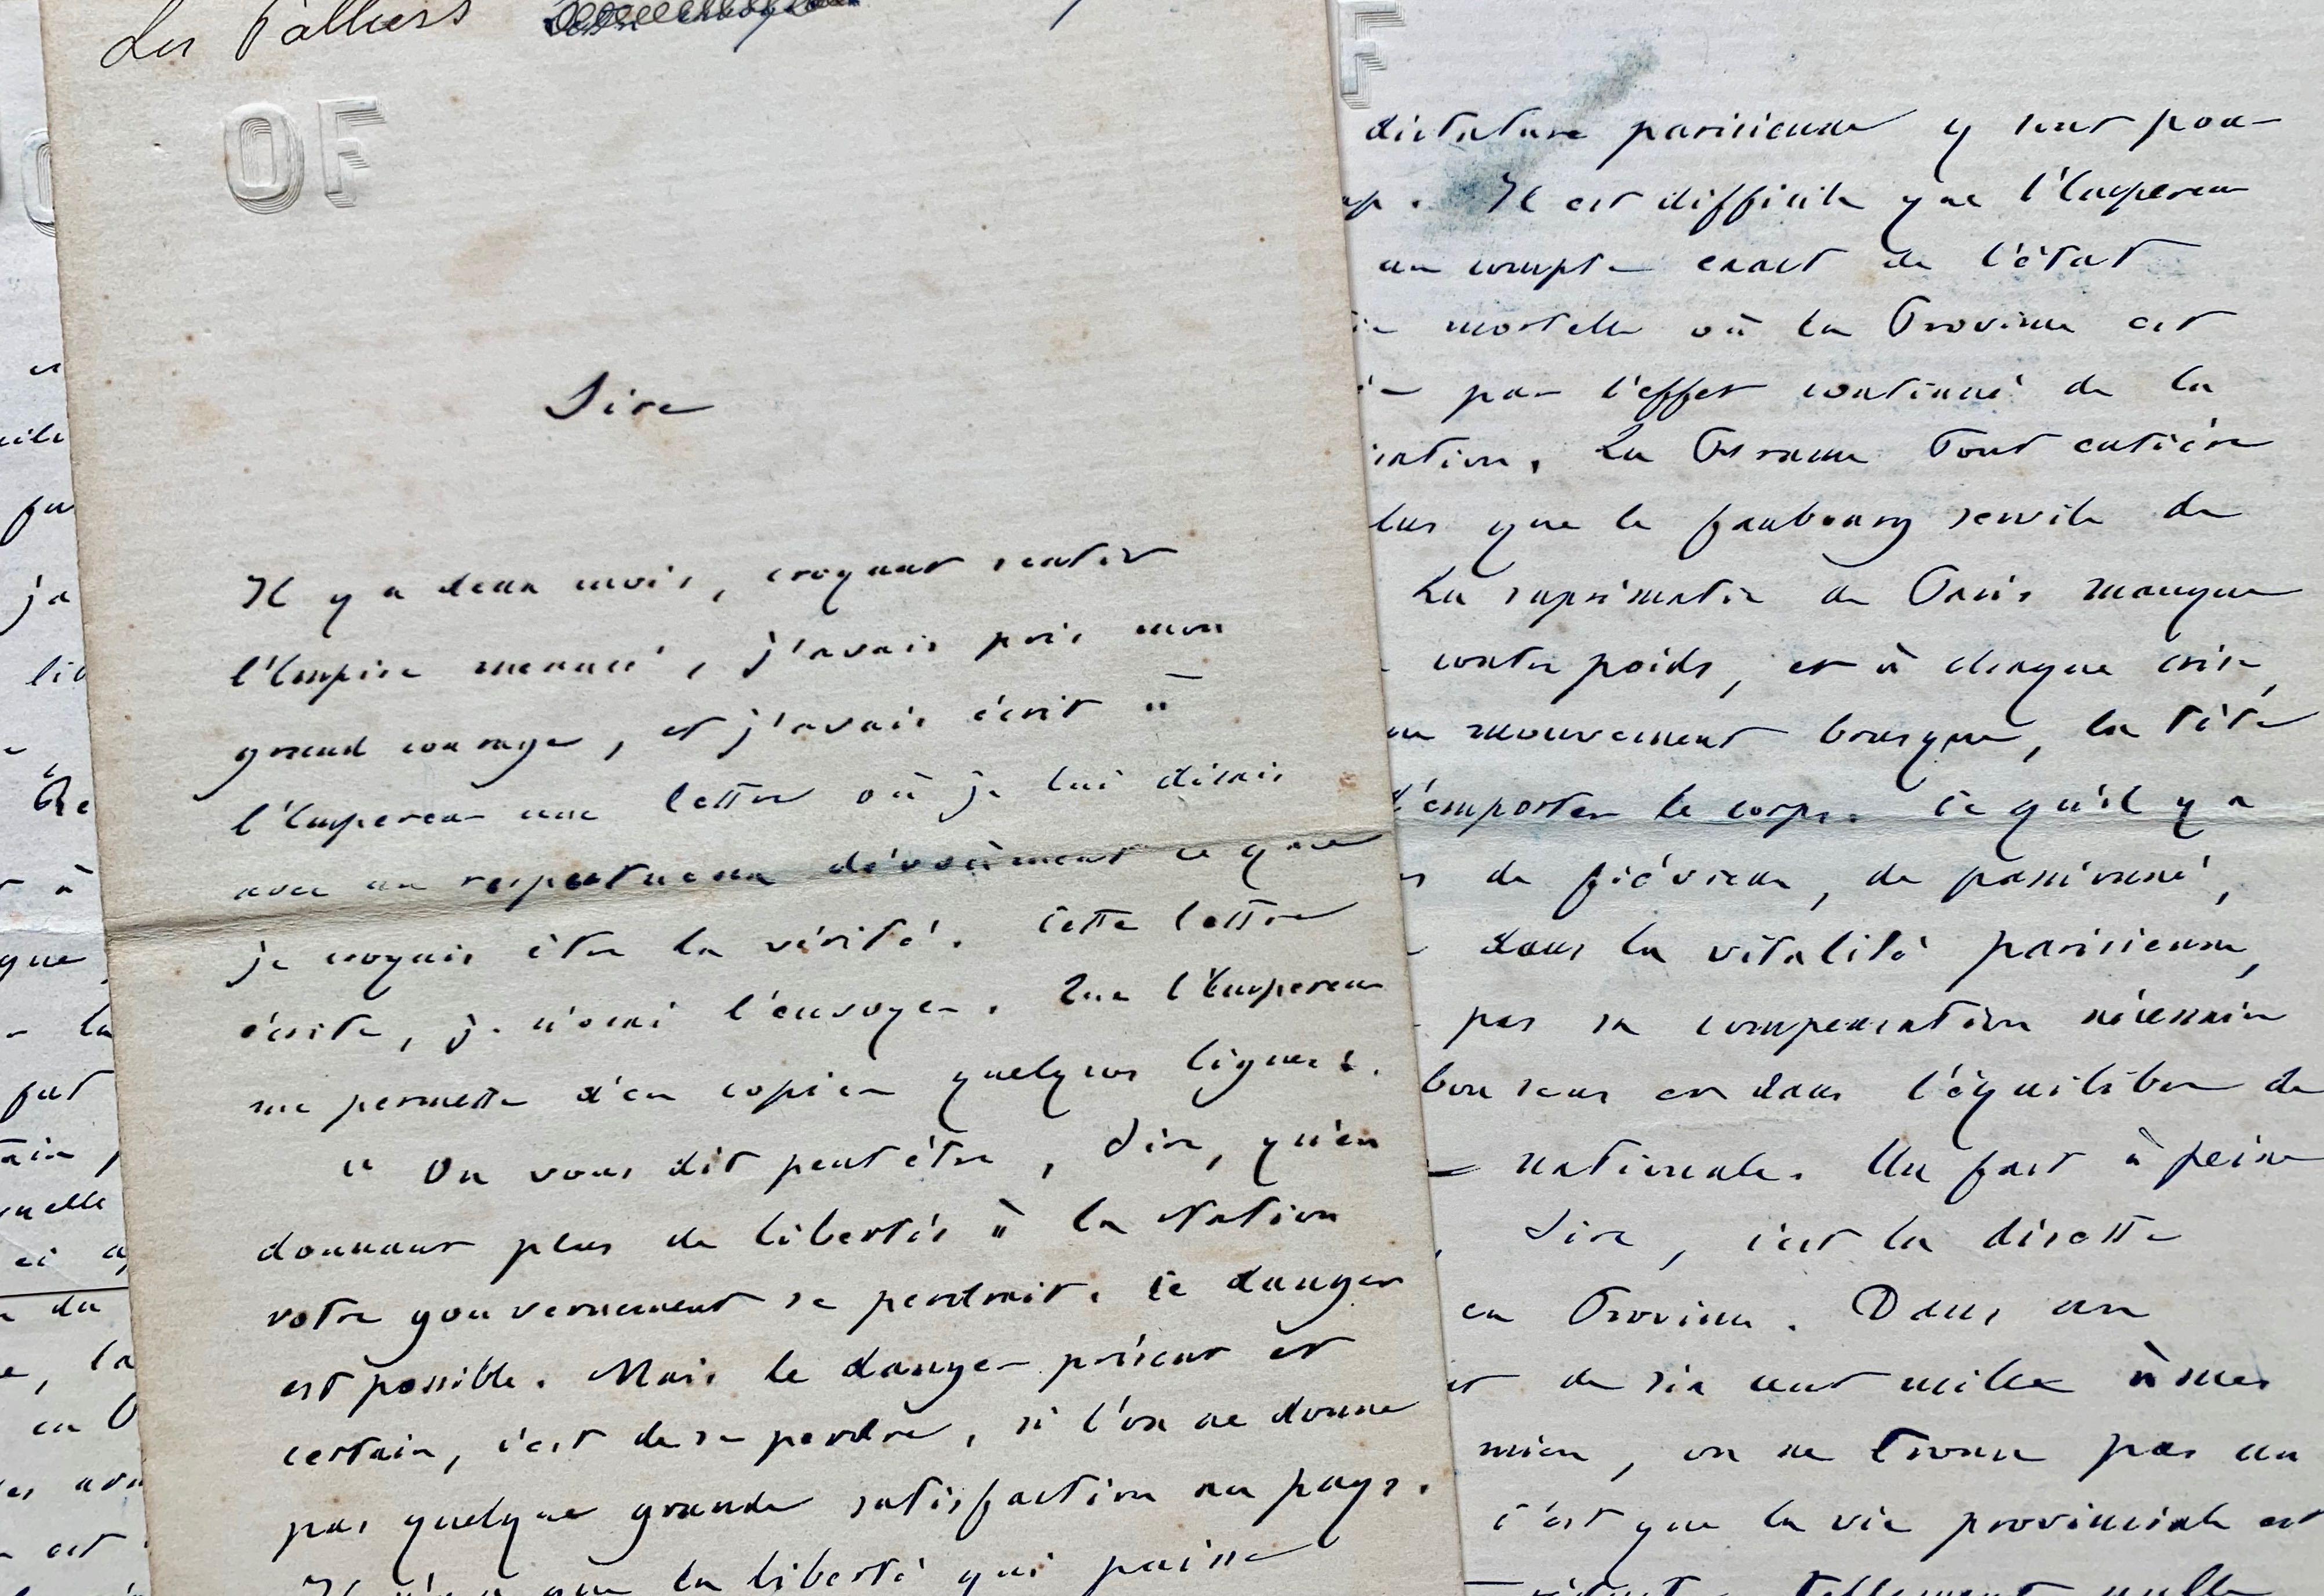 Les Palliers
OF
Sire
Il y a deux mois, croyant sentir
l'Empire menacé, j'avais pris mon
grand courage, et j'avais écrit à
l'Empereur une lettre où je lui disais
avec un respectueux dévoûment ce que
je croyais être la vérité. Cette lettre
écrite, je n'osai l'envoyer. Que l'Empereur
me permette d'en copier quelques lignes.
" On vous dit peut être, Sire, qu'en
donnant plus de libertés à la Nation
votre gouvernement se perdrait. Ce danger
est possible. Mais le danger présent et
certain, c'est de se perdre, si l'on ne donne
pas quelque grande satisfaction au pays.
Il n'y a que la liberté qui puisse
F
dictature parisienne y sont pour
up. Il est difficile que l'Empereur
un compte exact de l'état
mortelle où la Province est
par l'effet continué de la
isation. La France tout entière
lus que le faubourg servile de
La suprématie de Paris manque
contre poids, et à chaque crise,
un mouvement brusque, la tête
d'emporter le corps. Ce qu'il y a
de fiévreux, de passionné,
dans la vitalité parisienne,
pas sa compensation nécessaire
bon sens et dans l'équilibre de
nationale. Un fait à peine
, Sire, c'est la disette
en Province. Dans un
de six cent mille âmes
mien, on ne trouve pas un
C'est que la vie provinciale est
tellement nulle
fu
j'a
lib
Re
à
que
la
fut
ain,
nuelle
ci
du
la
en
est